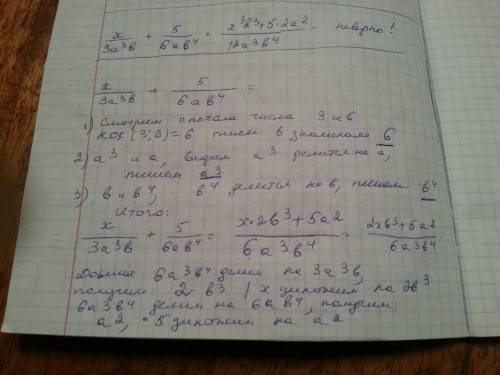 x/3a³b + 5/6ab⁴ = x³b³+5·2a²/12a³b⁴ неверно!
x/3a³b + 5/6ab⁴ =
1) Смотрим сначала числа 3 и 6.
НОК (3;6)=6. пишем в знаменатель 6
2) a³ и a, видим a³ делится на a,
пишем a³
3) b и b⁴, b⁴ делится на b, пишем b⁴
Итого:
x/3a³b + 5/6ab⁴ = x·2b³+5a²/6a³b⁴ = 2xb³+5a²/6a³b⁴
Дальше 6a³b⁴ делим на 3a³b,
получим: 2b³. | x умножим на 2b³
6a³b⁴ делим на 6ab⁴, получим:
a², 5 умножим на a²